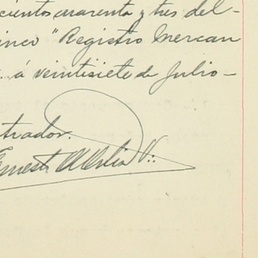 ciento cuarenta y tres del-
inco "Registro Mercan
á veintisiete de Julio-
trador.
Ernesto V.